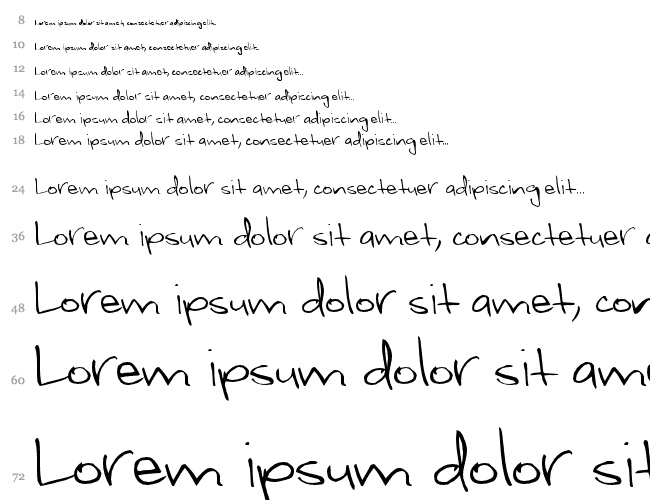 8 Lorem ipsum dolor sit amet, consectetuer adipiscing elit...
10 Lorem ipsum dolor sit amet, consectetuer adipiscing elit...
12 Lorem ipsum dolor sit amet, consectetuer adipiscing elit...
14 Lorem ipsum dolor sit amet, consectetuer adipiscing elit...
16 Lorem ipsum dolor sit amet, consectetuer adipiscing elit...
18 Lorem ipsum dolor sit amet, consectetuer adipiscing elit...
24 Lorem ipsum dolor sit amet, consectetuer adipiscing elit...
36 Lorem ipsum dolor sit amet, consectetuer
48 Lorem ipsum dolor sit amet, con
60 Lorem ipsum dolor sit am
72 Lorem ipsum dolor sit